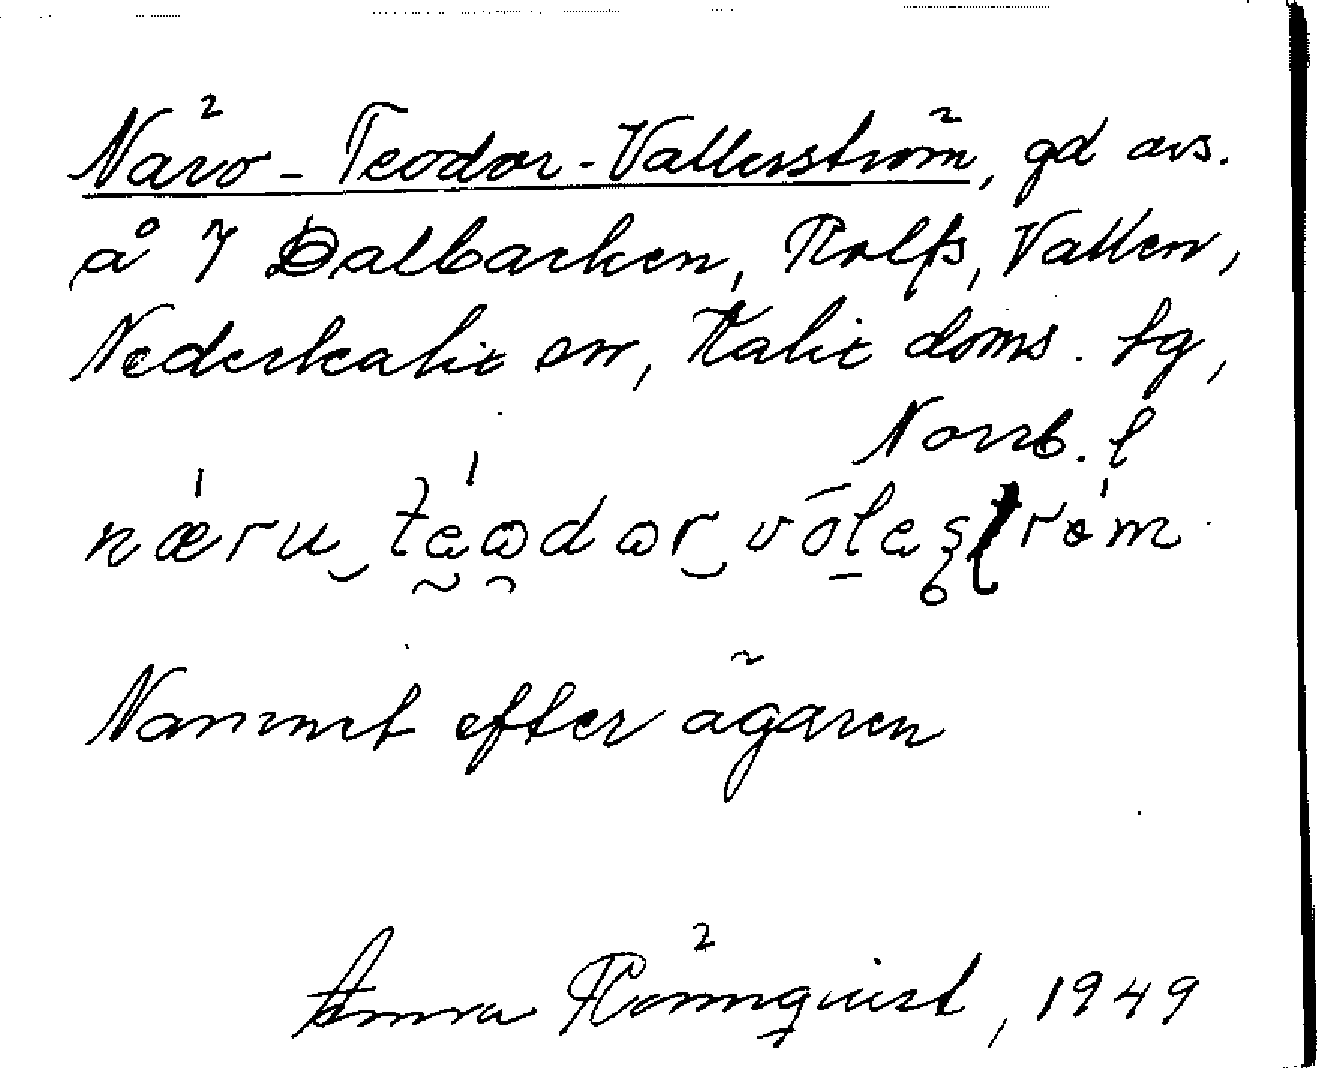 Näro-Teodor-Vallerström, gd avs.
å 7 Dalbacken, Rolfs, Vallen,
Nederkalix sn, Kalix doms. tg,
Norrb. l
næru teodor
Namnet efter ägaren
Anna Rönnqvist, 1949